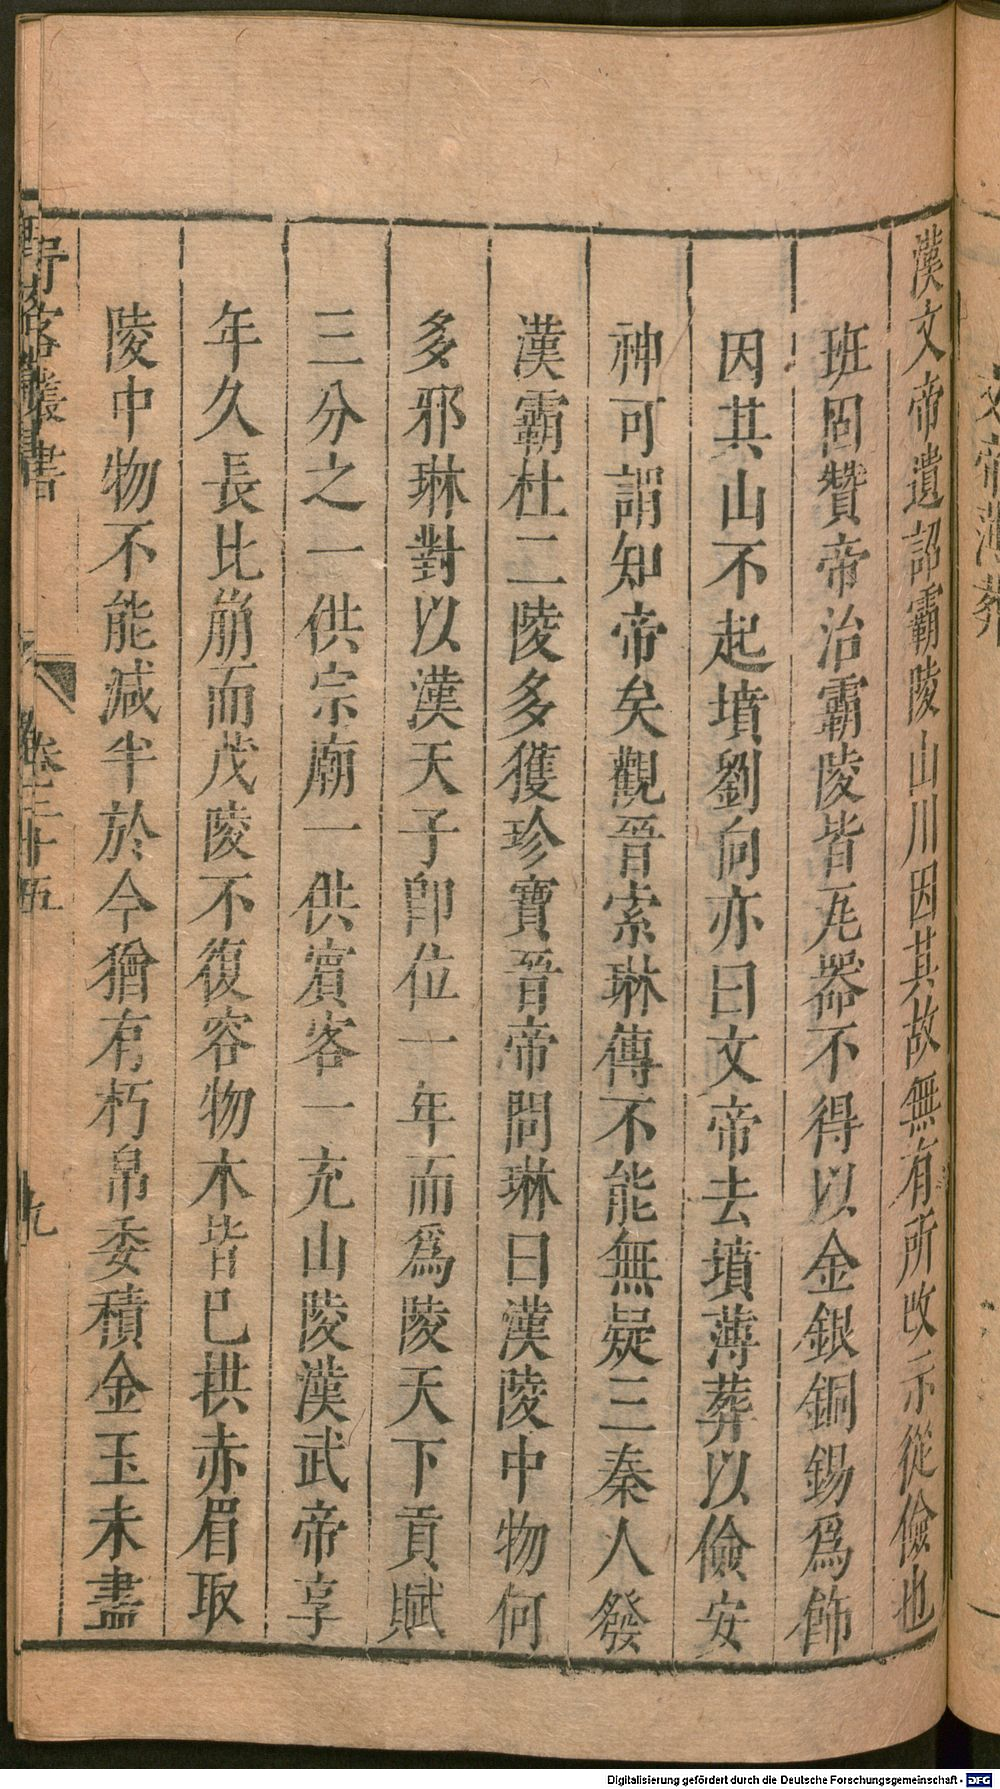 漢文帝遺詔霸陵山川因其故無有所改示從儉也
班固贊帝治霸陵皆瓦器不得以金銀銅錫爲飾
因其山不起墳劉向亦曰文帝去墳薄葬以儉安
神可謂知帝矣觀晉索琳傳不能無疑三秦人發
漢霸杜二陵多獲珍寶晉帝問琳曰漢陵中物何
多邪琳對以漢天子即位一年而爲陵天下貢賦
三分之一供宗廟一供賓客一充山陵漢武帝享
年久長比崩而茂陵不復容物木皆已拱赤眉取
陵中物不能減半於今猶有朽帛委積金玉未盡
野客叢書 卷二十五 九
文帝薄葬
Digitalisierung gefördert durch die Deutsche Forschungsgemeinschaft - DFG